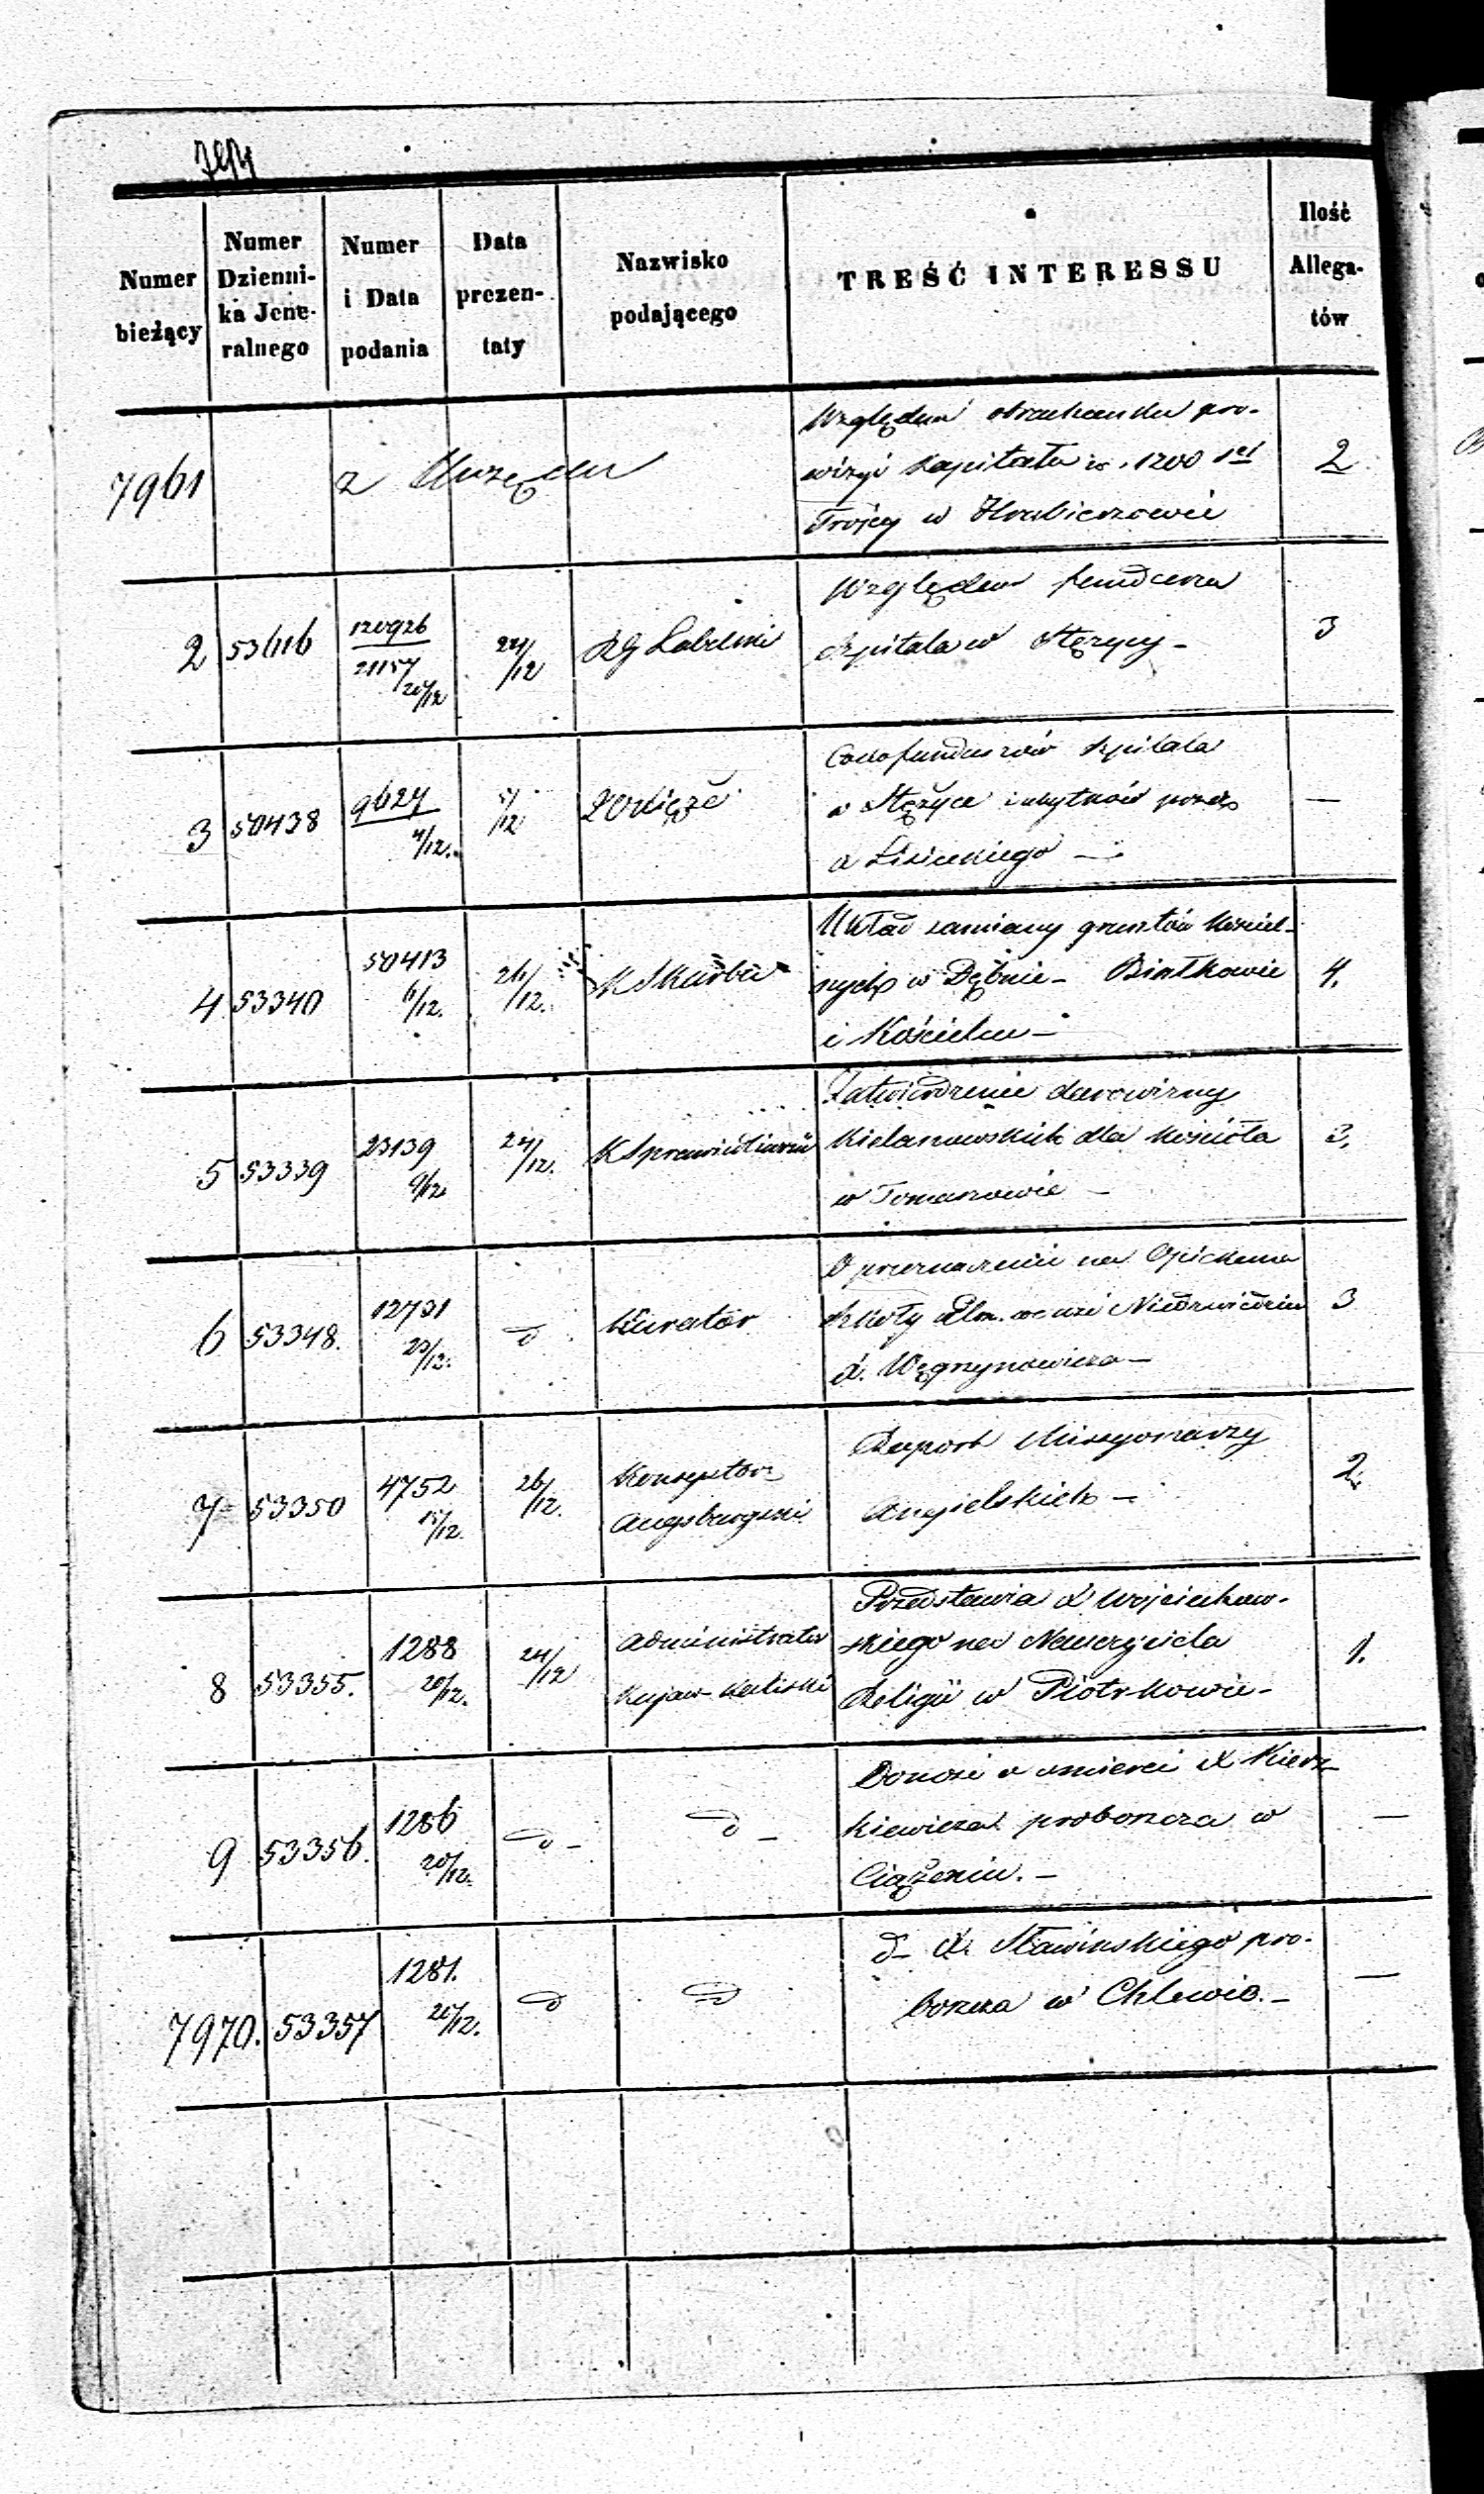 Numer bieżący
Numer Dzienni-
ka Jene-
ralnego
Numer
i Data
podania
Data
prezen-
taty
Nazwisko
podającego
TREŚĆ INTERESSU
Ilość
Allega-
tów
7961
z Urzędu
Względem obrachunku pro-
wizyi kapitału 1200
Trójcy w Hrubieszowie
2
2
53616
120926
20/12
24/12
RG Lubelski
Względem fundusza
Szpitala w Stężycy -
3
3
50438
9627
4/12.
5/12
funduszów szpitala
w Stężyce i użytków przez
—
4
53340
50413
6/12.
26/12.
K Skarbu
Układ zamiany gruntów kościel-
nych w Dębnie - Białkowie
i Kościelu -
4.
5
53339
23139
9/12
24/12.
K Sprawiedliwości
Zatwierdzenie darowizny
Kielanowskich dla kościoła
w Tomaszowie -
3,
6
53348.
12731
23/12.
d
Kurator
O przeznaczeniu na Opiekuna
Szkoły Elm. we wsi Niedrwicdziu
X. Węgrzynowicza -
3
7
53350
4752
15/12.
26/12.
Konsystorz
Augsburgski
Raport Missyonarzy
Angielskich -
2.
8
53355.
1288
20/12.
24/12
Administrator
Kujaw Kaliski
Przedstawia X Wojciechow-
skiego na Nauczyciela
Religii w Piotrkowie -
1.
9
53356.
1286
20/12.
d -
d -
Donosi o śmierci X Kierz-
kiewicza proboszcza w
Ciążeniu. -
—
7970.
53357
1281.
20/12.
d
d
d - X. Sławinskiego pro-
boszcza w Chlewie. -
—